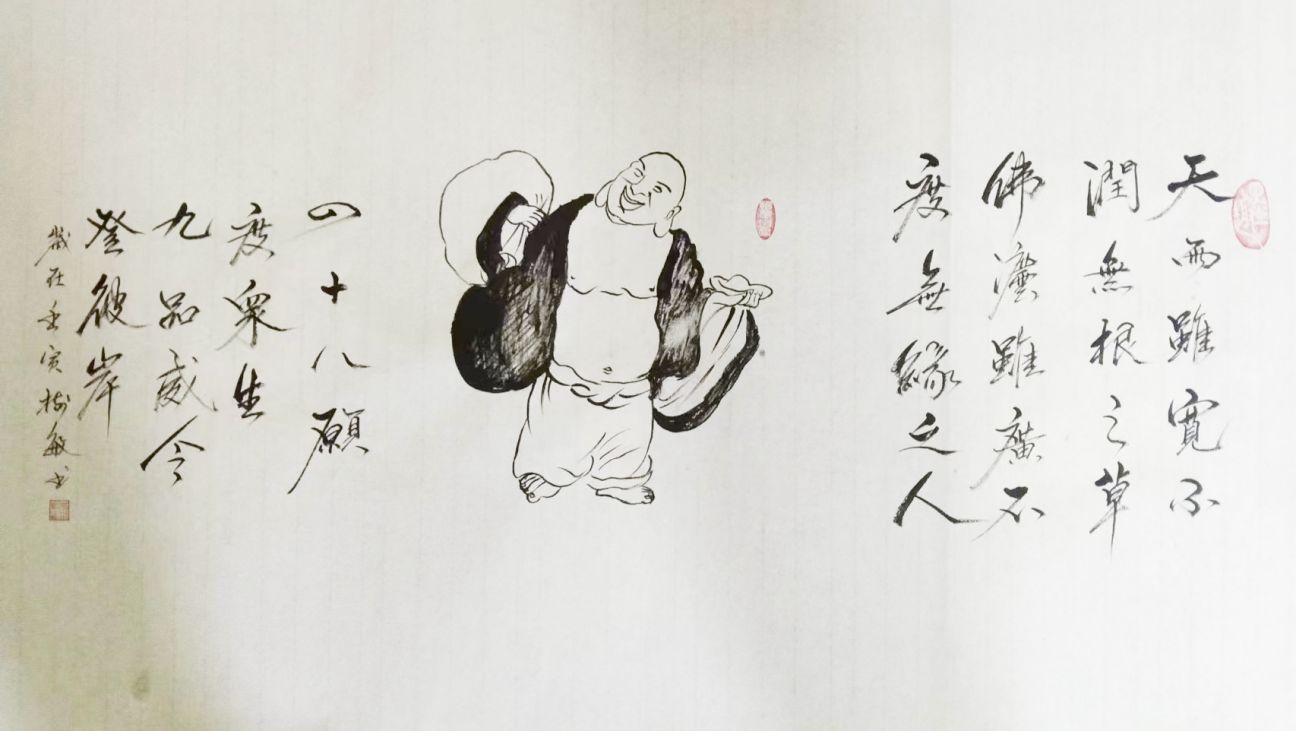 天雨雖寬不
潤無根之草
佛灋雖廣不
度無緣之人
四十八願
度衆生
九品咸令
登彼岸
歲在壬寅樹敏书